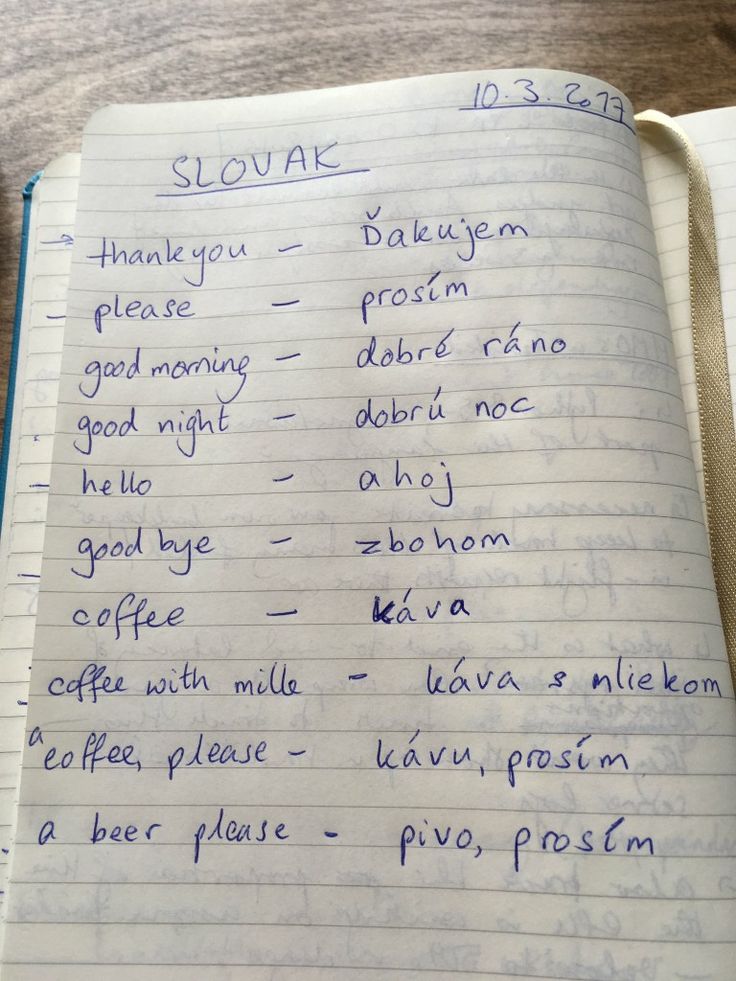 10.3.2017
SLOVAK
thank you – Ďakujem
please – prosím
good morning – dobré ráno
good night – dobrú noc
hello – ahoj
good bye – zbohom
coffee – káva
coffee with milk – káva s mliekom
a coffee, please – kávu, prosím
a beer please – pivo, prosím